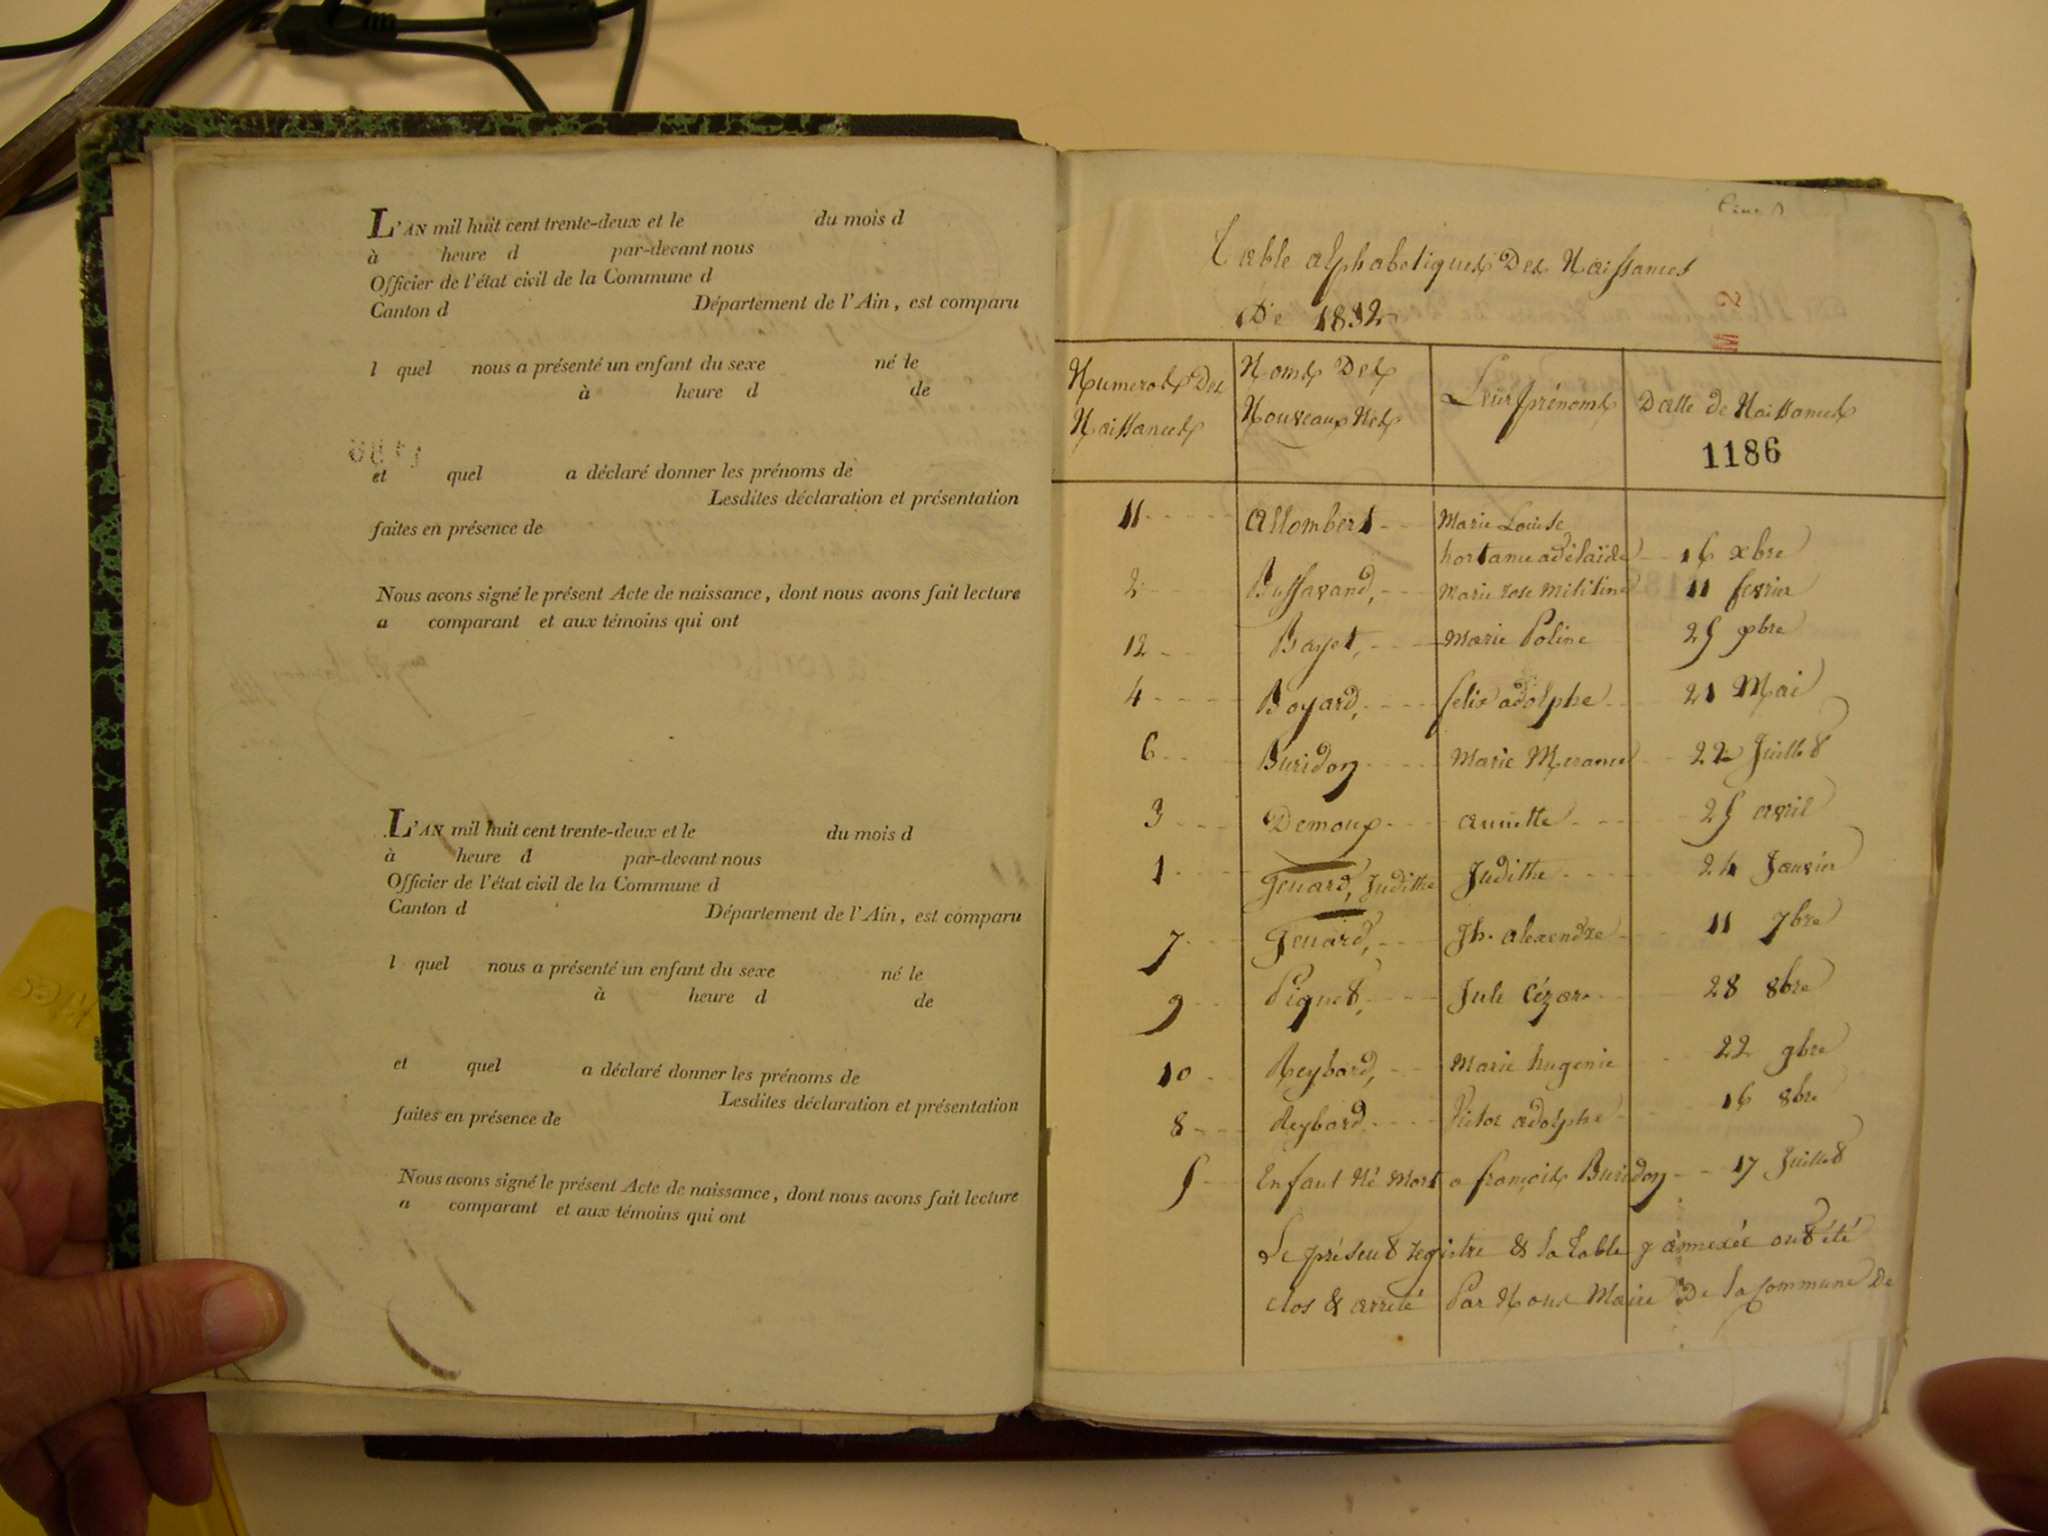 L'AN mil huit cent trente-deux et le du mois d
à heure d par-devant nous
Officier de l'état civil de la Commune d
Canton d Département de l'Ain, est comparu
l quel nous a présenté un enfant du sexe né le
à heure d de
et quel a déclaré donner les prénoms de
Lesdites déclaration et présentation
faites en présence de
Nous avons signé le présent Acte de naissance, dont nous avons fait lecture
a comparant et aux témoins qui ont
L'AN mil huit cent trente-deux et le du mois d
à heure d par-devant nous
Officier de l'état civil de la Commune d
Canton d Département de l'Ain, est comparu
l quel nous a présenté un enfant du sexe né le
à heure d de
et quel a déclaré donner les prénoms de
Lesdites déclaration et présentation
faites en présence de
Nous avons signé le présent Acte de naissance, dont nous avons fait lecture
a comparant et aux témoins qui ont
Table alphabetiques Des Naissances
De 1832
M 2
Numeros Des Naissances
Noms Des Nouveaux Nés
Leur prénoms
Datte de Naissances
1186
11 Allombert Marie Louise
hortance adélaïde 16 xbre
2 Buffavand, Marie rose 11 fevrier
12 Bayet, Marie Poline 25 xbre
4 Boyard, felix adolphe 21 Mai
6 Buridon Marie 22 Juillet
3 Demoux annette 25 avril
1 Jenard, Judithe Judithe 24 Janvier
7 Jenard, Jh. alexendre 11 7bre
9 Piquet, Jule Cézar 28 8bre
10 Reybard, Marie hugenie 22 9bre
8 Reybard Victor adolphe 16 8bre
5 Enfant Né Mort a françois Buridon 17 Juillet
Le présent registre & la table y annexée ont été
clos & arreté Par Nous Maire De la Commune De